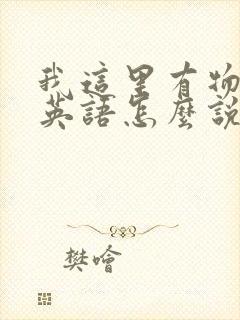 我這里有物
英語怎麼說
樊噲